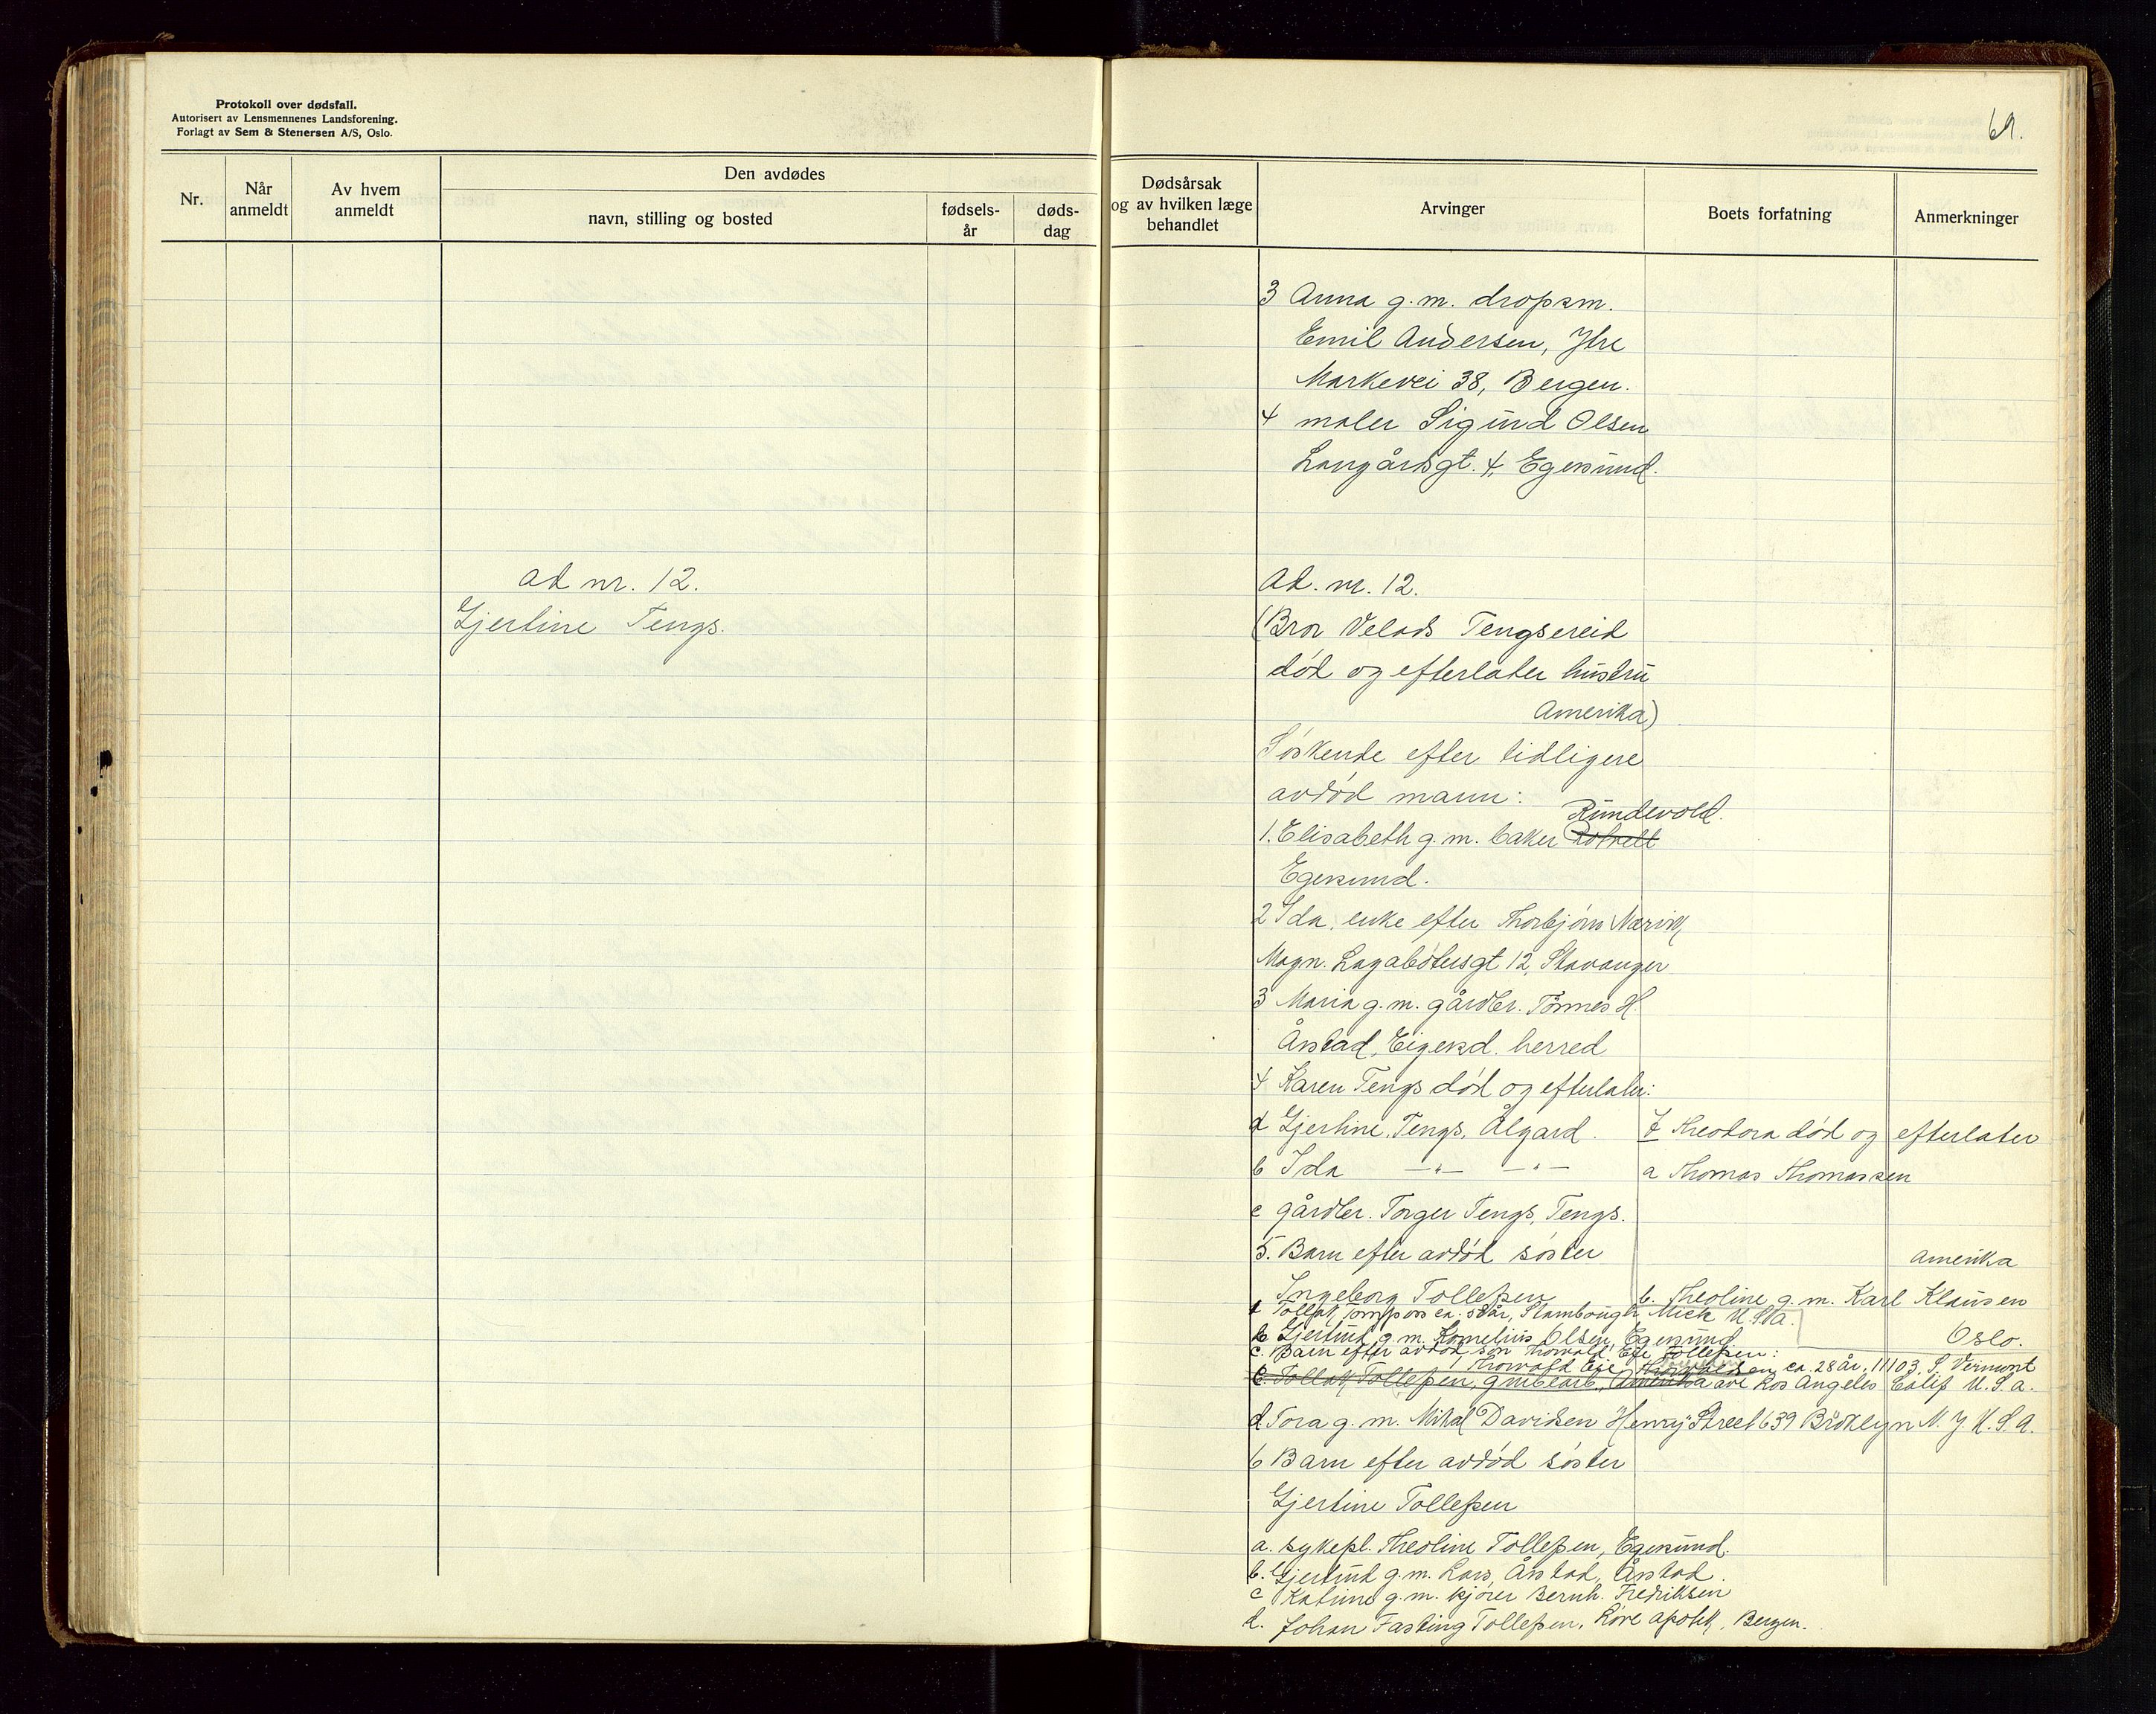 Protokoll over dødsfall.
Autorisert av Lensmennenes Landsforening.
Forlagt av Sem & Stenersen A/S, Oslo.
Nr.
Når anmeldt
Av hvem anmeldt
Den avdødes
navn, stilling og bosted
fødsels-år
døds-dag
ad nr. 12.
Gjertine Tengs.
69.
Dødsårsak og av hvilken læge behandlet
Arvinger
Boets forfatning
Anmerkninger
3 Anna g.m. dropsm.
Emil Andersen, Ytre
Markevei 38, Bergen.
4 maler Sigurd Olsen
Langårdsgt. 4, Egersund.
Ad. nr. 12.
(Bror Velads Tengsereid
død og efterlater hustru
Amerika)
Søskende efter tidligere
avdød mann:
Rundevold.
1. Elisabeth g.m. baker
Egersund.
2 Ida, enke efter Thorbjørn Nærvik,
Magn. Lagabøtersgt 12, Stavanger
3 Maria g.m. gårdbr. Tønnes H.
Årstad, Eigersd. herred
4 Karen Tengs død og efterlater:
a Gjertine Tengs, Ålgård.
7 Theodora død og efterlater
b Ida —"— —"—
a Thomas Thomassen
c gårdbr. Torger Tengs, Tengs.
5. Barn efter avdød søster
Amerika
Ingeborg Tollefsen
b. Theoline g.m. Karl Klausen
a Tollak Tompson ca. 58 år, Stambough Mich U.S.A.
Oslo.
b Gjertrud g.m. Kornelius Olsen, Egersund
c. Barn efter avdød søn Thorvald Eie Tollefsen:
Thorvald Eie Thorvaldsen ca. 28 år, 11103 S. Vermont
c. Tollak Tollefsen, grubearb., Amerika ave Los Angeles Calif U.S.A.
d. Tora g.m. Mikal Davidsen Henry Street 639 Broklyn N.Y. U.S.A.
6 Barn efter avdød søster
Gjertine Tollefsen
a. sykepl. Theoline Tollefsen, Egersund.
b. Gjertrud g.m. Lars Årstad, Årstad.
c Katrine g.m. kjører Bernh. Fredriksen
d. Johan Fasting Tollefsen, Løve apotek, Bergen.